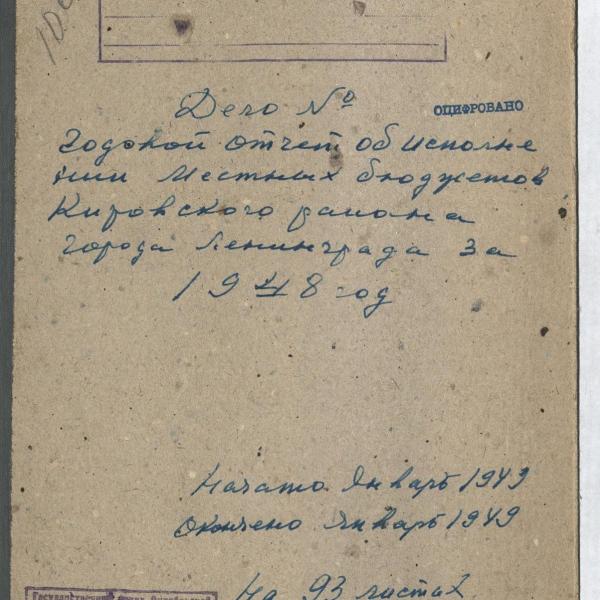 Дело №
ОЦИФРОВАНО
Годовой отчет об исполне
нии местных бюджетов
Кировского района
города Ленинграда за
1948 год
Начато Январь 1949
Окончено Январь 1949
На 93 листах